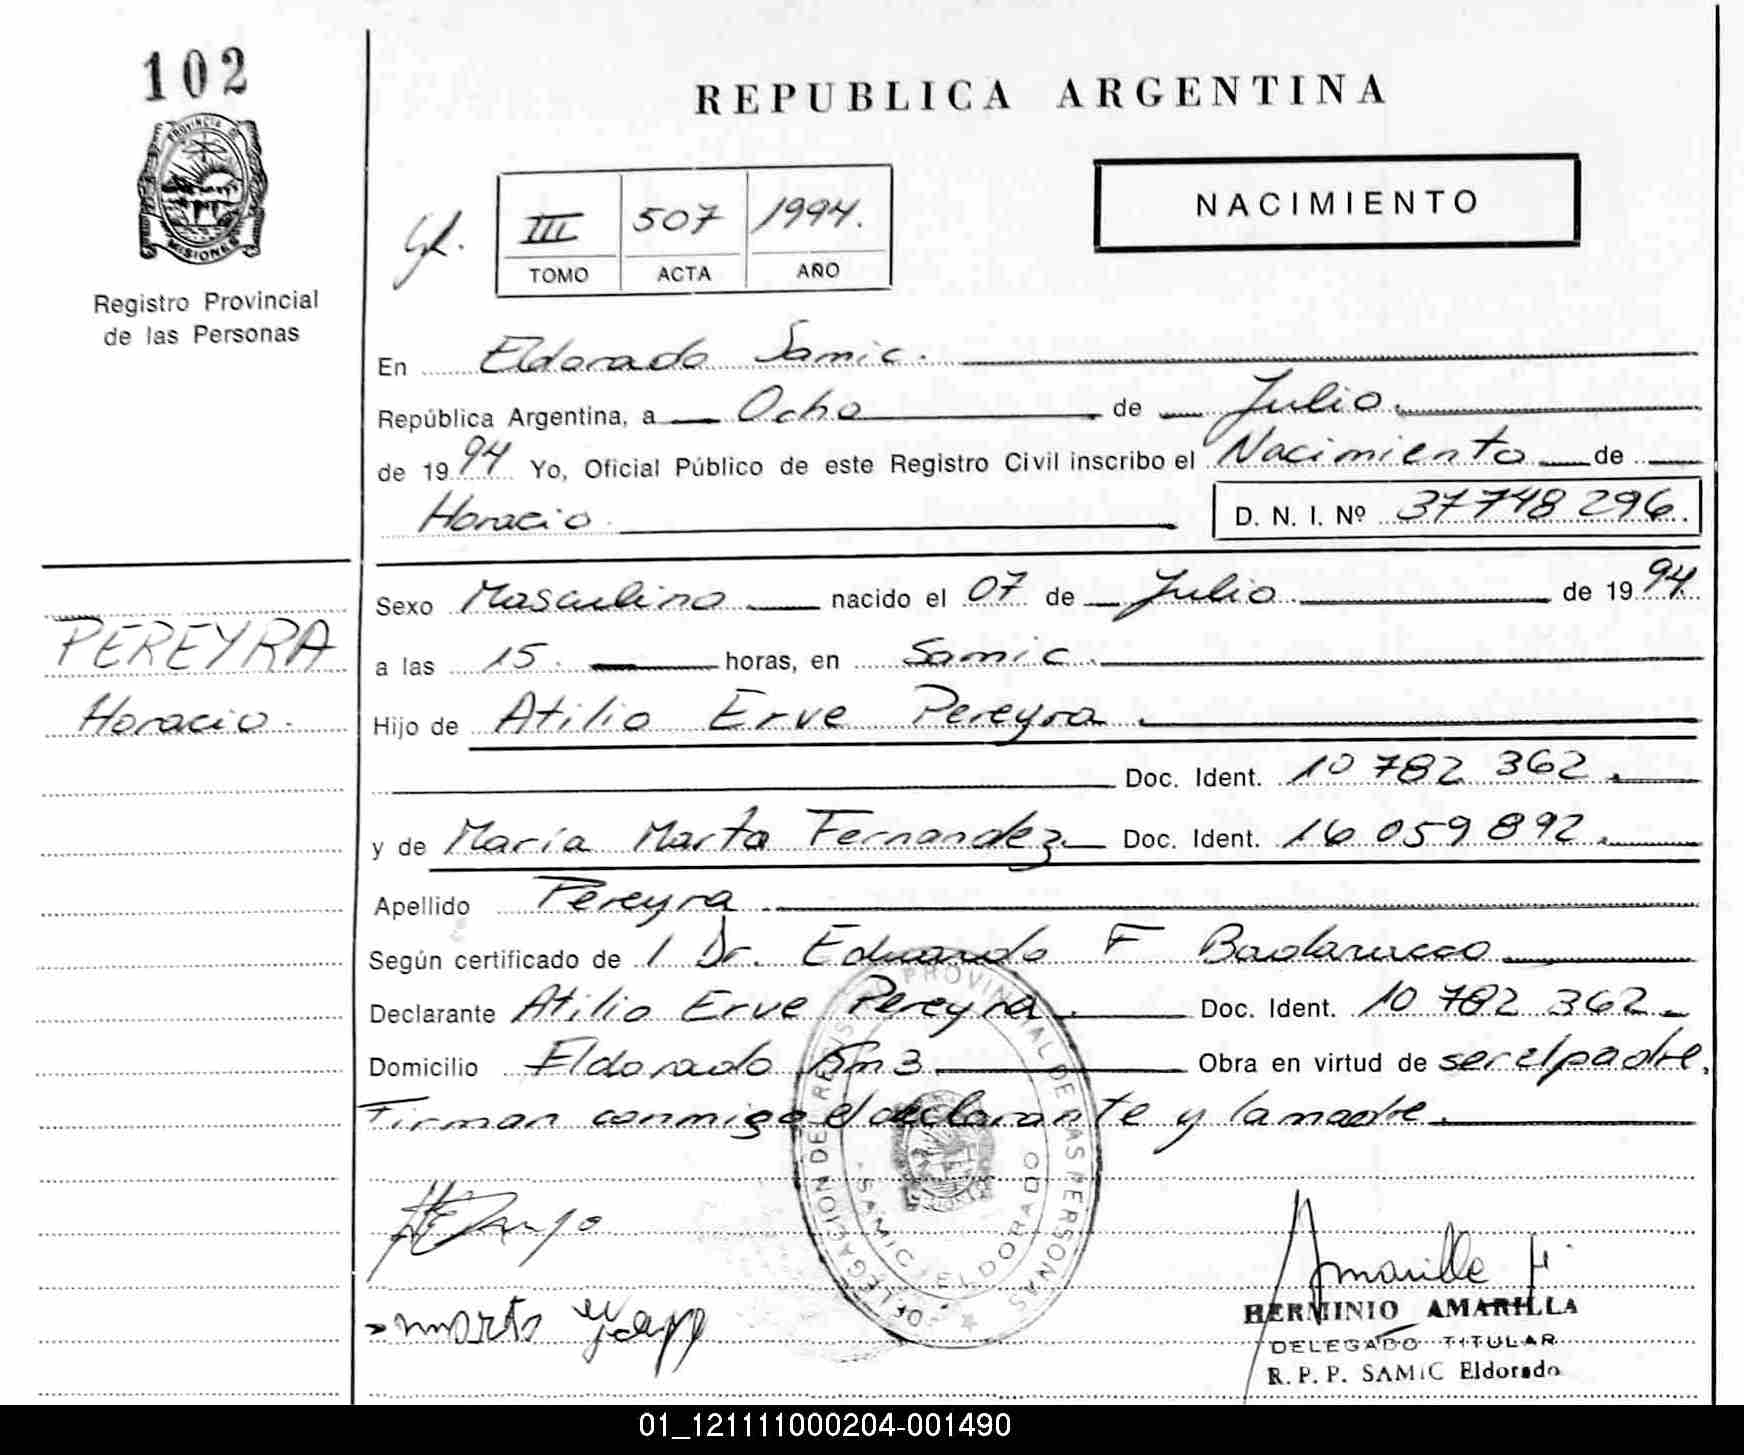 102
PROVINCIA DE
MISIONES
Registro Provincial
de las Personas
REPUBLICA ARGENTINA
NACIMIENTO
III 507 1994.
TOMO ACTA AÑO
En Eldorado Samic.
República Argentina, a Ocho de Julio.
de 1994 Yo, Oficial Público de este Registro Civil inscribo el Nacimiento de
Horacio. D. N. I. Nº 37748296.
PEREYRA
Horacio.
Sexo Masculino nacido el 07 de Julio de 1994.
a las 15. horas, en Samic.
Hijo de Atilio Erve Pereyra
Doc. Ident. 10 782 362.
y de María Marta Fernandez Doc. Ident. 16 059 892.
Apellido Pereyra
Según certificado de / Dr. Eduardo F
Declarante Atilio Erve Pereyra. Doc. Ident. 10 782 362.
Domicilio Eldorado Km 3 Obra en virtud de ser el padre,
Firman conmigo el declarante y la madre.
DELEGACION DEL REGISTRO PROVINCIAL DE LAS PERSONAS
SAMIC ELDORADO
Amarilla H.
HERMINIO AMARILLA
DELEGADO TITULAR
R. P. P. SAMIC Eldorado
01_121111000204-001490